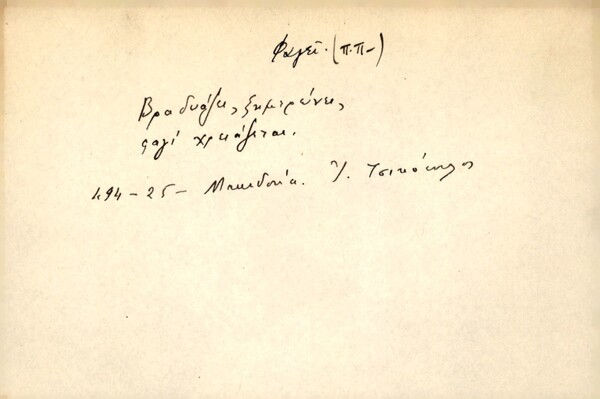 Φαγεῖ. (π.π-)
Βραδυάζει, ξημερώνει,
φαγί χρειάζεται.
494 - 25 - Μακεδονία. Ἰ. Τσικόπουλος